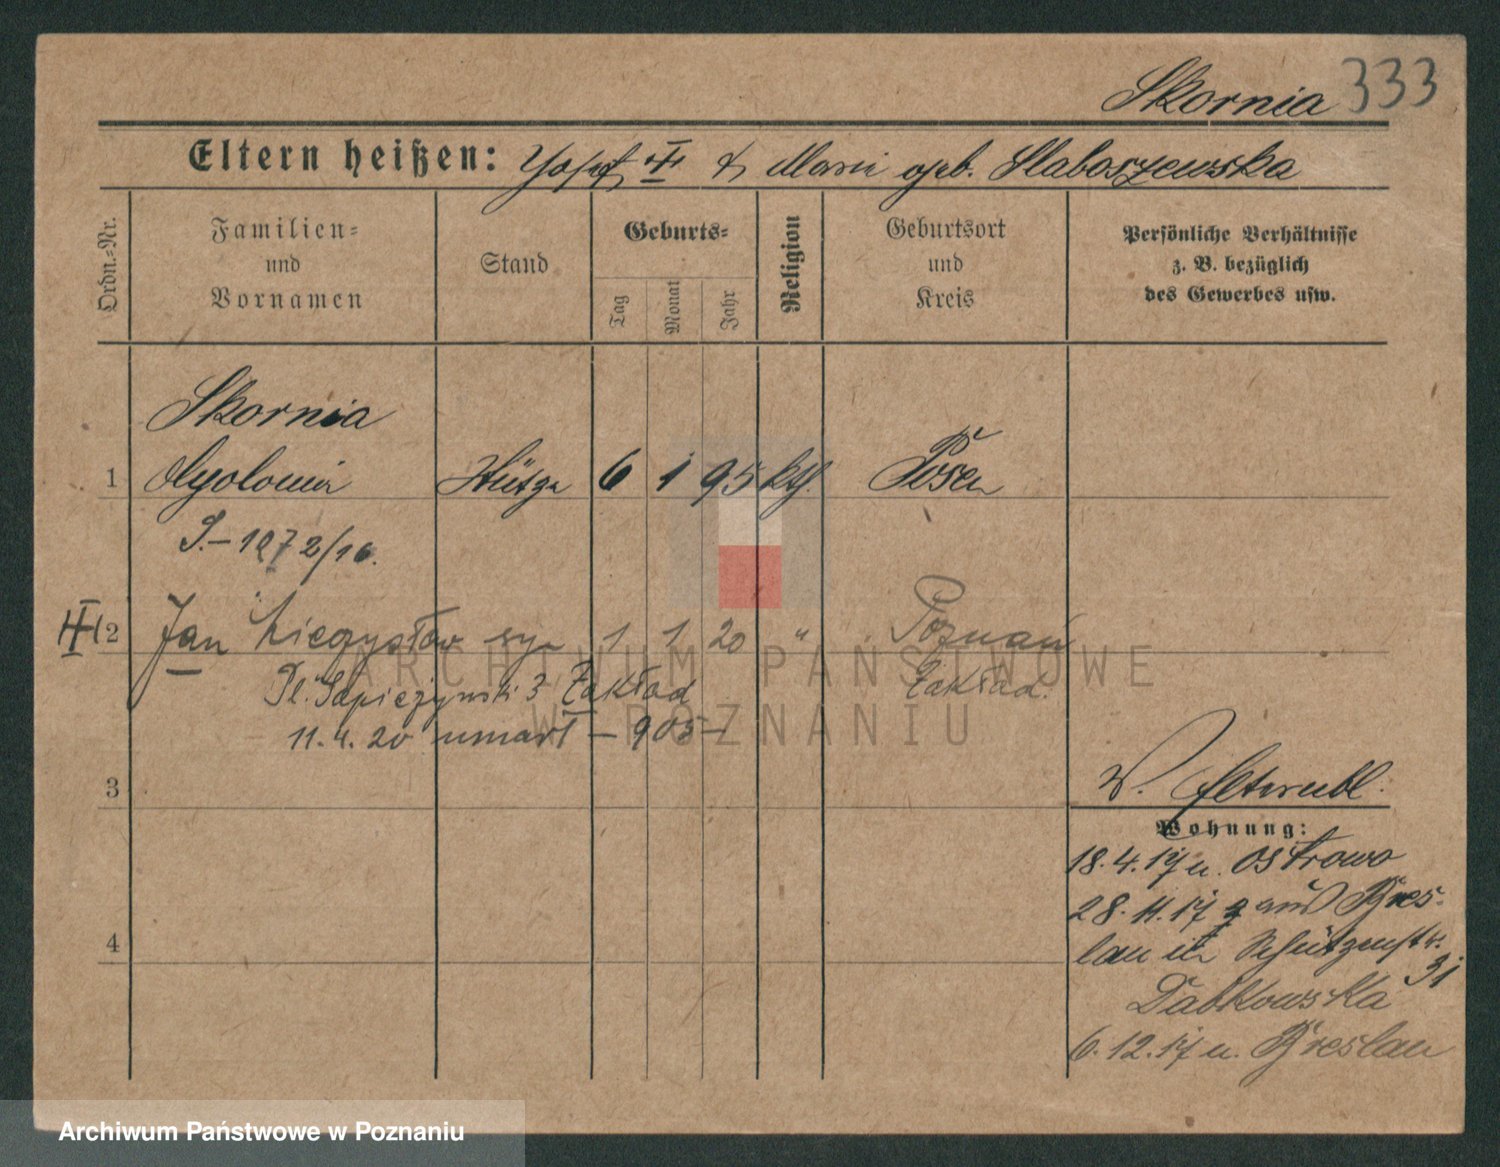 Skornia 333
Eltern heißen: Josef & Marie geb. Slaboszewska
Ordn.-Nr.
Familien-
und
Vornamen
Stand
Geburts-
Tag
Monat
Jahr
Religion
Geburtsort
und
Kreis
Persönliche Verhältnisse
z. B. bezüglich
des Gewerbes usw.
Skornia
1 Apolonia 6 1 95 kth. Posen
1972/16.
2 Jan Mieczysław syn 1 1 20 " Poznań
Pl. Sapieżyński 3 Zakład Zakład.
11.4.20 umarł – 905 –
3
W.
Wohnung:
18.4.17 n. Ostrowo
28.11.17 aus Bres-
lau Schützenstr.
31
Dabkowska
4
6.12.17 n. Breslau
ARCHIWUM PAŃSTWOWE
W POZNANIU
Archiwum Państwowe w Poznaniu